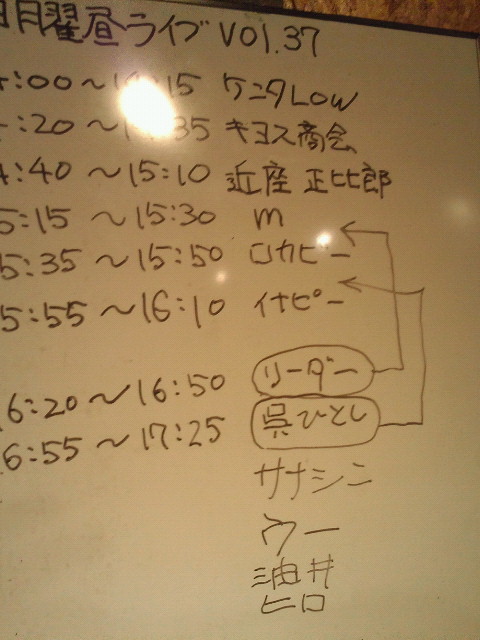 日曜昼ライブ VOl.37
:00～15 ケンタLOW
:20～35 キヨス商会
4:40～15:10 近座 正比郎
5:15～15:30 m
5:35～15:50 ロカビー
5:55～16:10 イナピー
6:20～16:50 リーダー
6:55～17:25 呉ひとし
サナシン
ウー
油井
ヒロ